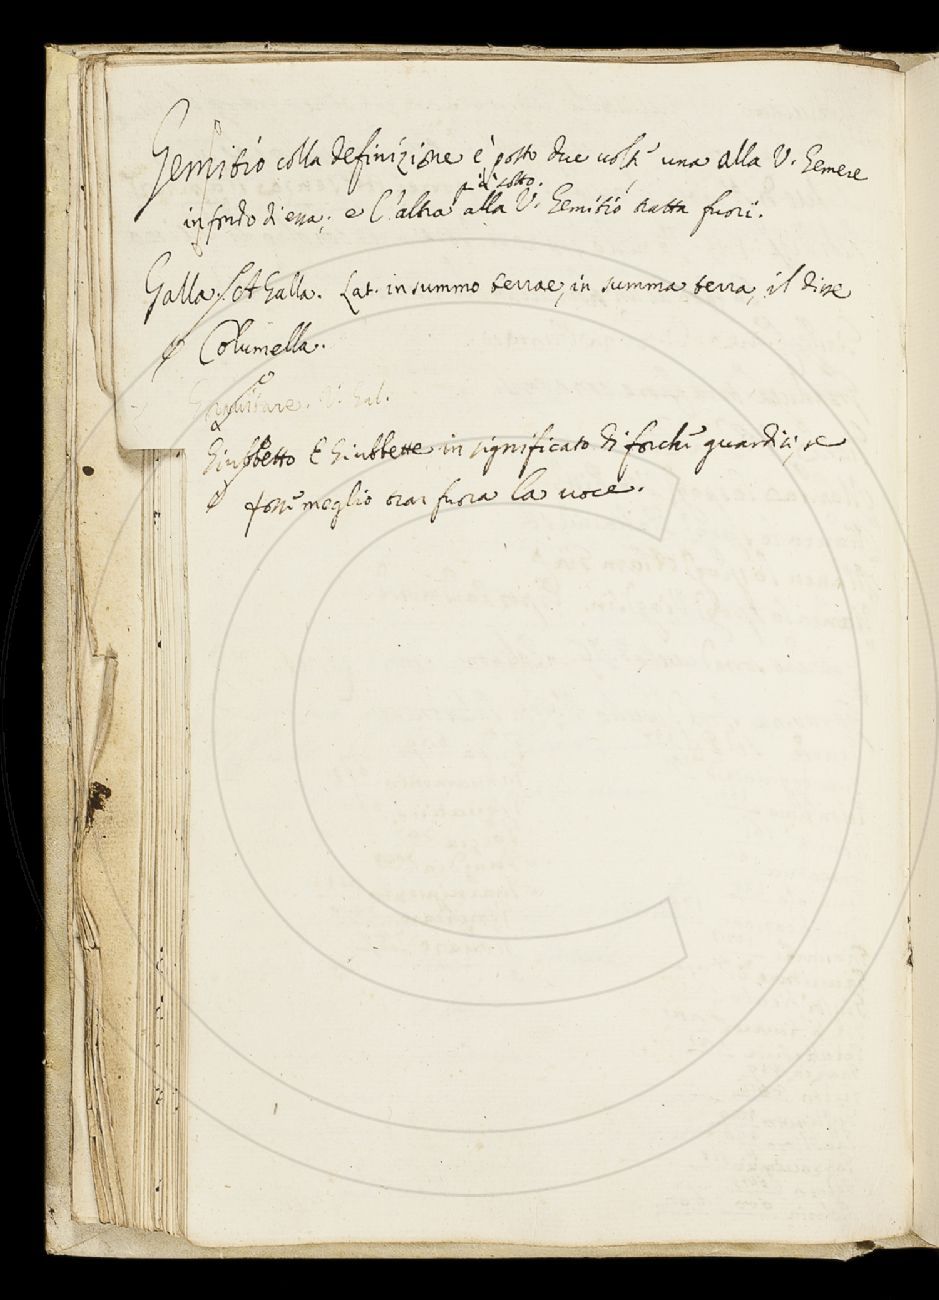 Gemitío colla definizione è posto due uolte una alla V. Gemere
in fondo di essa; e l'altra alla V. Gemitío tratta fuori.
di sotto.
Galla et Galla. Lat. in summo terrae, in summa terra, il disse
Columella.
V. Gal.
Giubbetto E Giubbette in significato di forche guardisi, se
fosse meglio trar fuora la uoce.
C